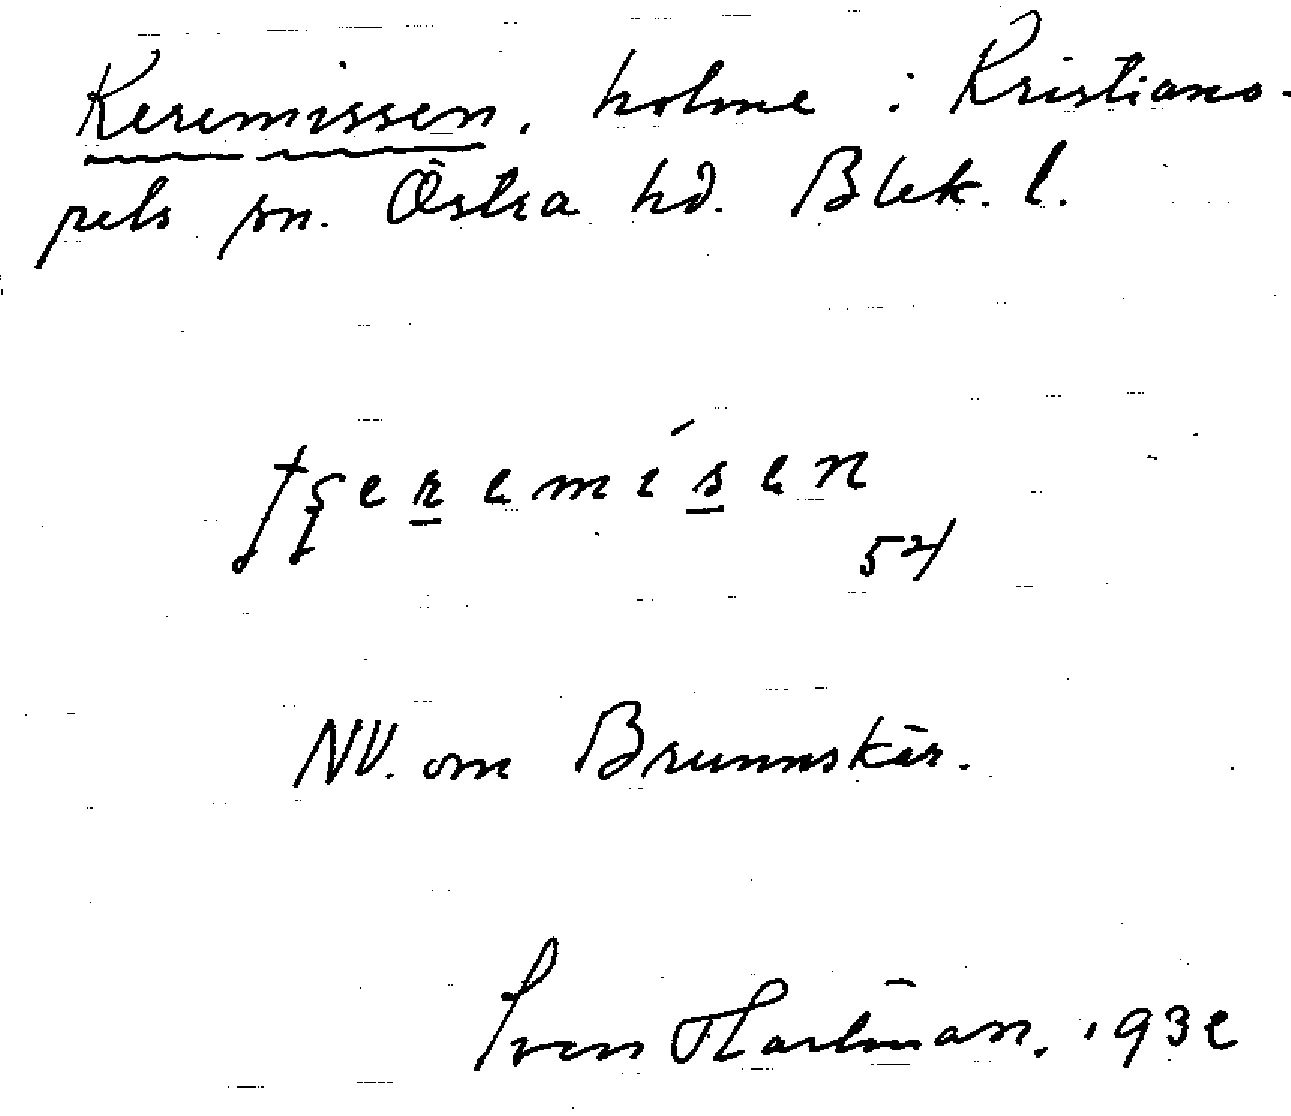 Keremissen, holme i Kristiano-
pels sn. Östra hd. Blek. l.
NV. om Brunnskär.
Sven Hartman. 1932